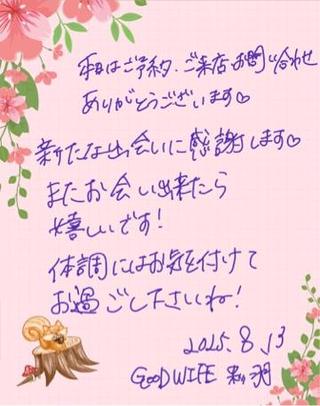 本日はご予約、ご来店、お問い合わせ
ありがとうございます♡
新たな出会いに感謝します♡
またお会い出来たら
嬉しいです!
体調にはお気を付けて
お過ごし下さいね!
2025.8.13
GOODWIFE